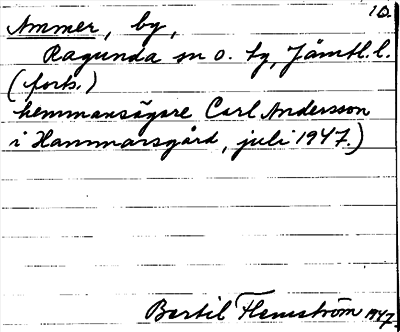 10.
Ammer, by,
Ragunda sn o. tg, Jämtl. l.
(forts.)
hemmansägare Carl Andersson
i Hammarsgård, juli 1947.)
Bertil Flemström 1947.